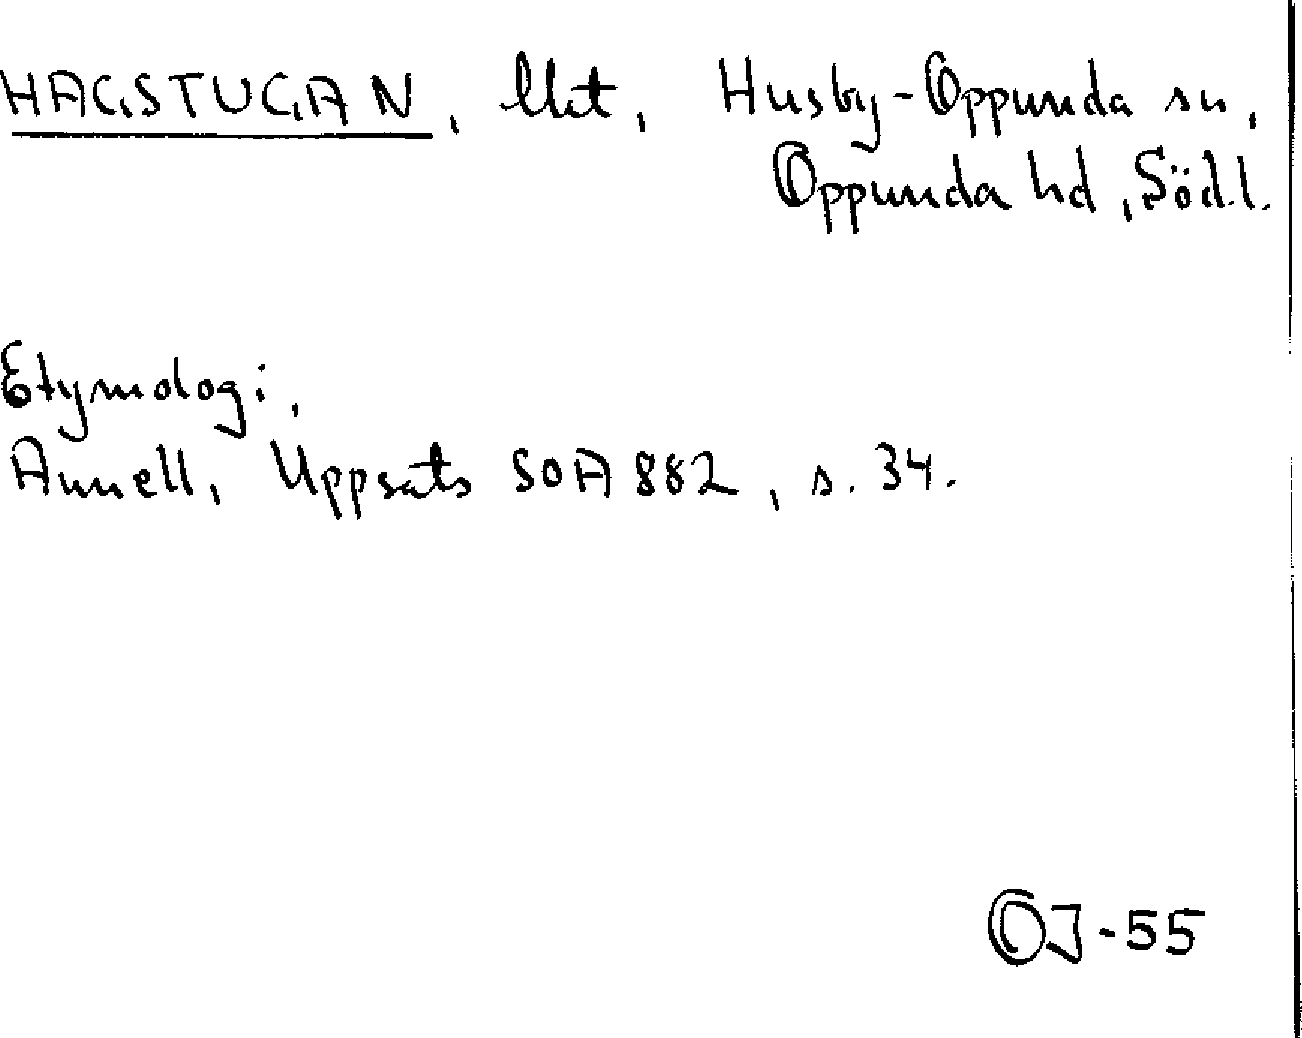 HAGSTUGAN, lht, Husby-Oppunda sn,
Oppunda hd, Södl.
Etymologi,
Annell, Uppsats SOA 882, s. 34.
OJ-55